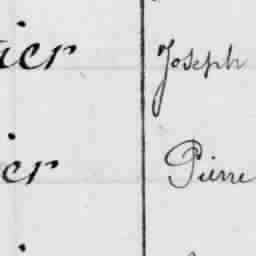 ier Joseph
er Pierre